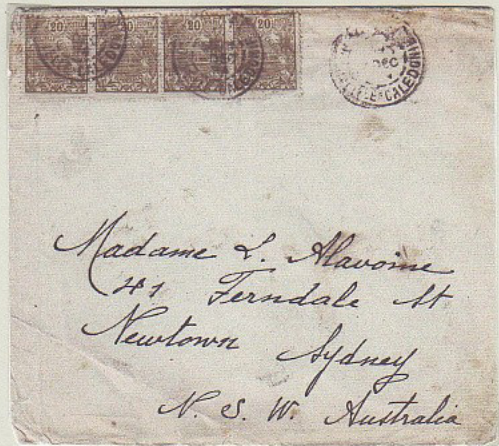 20 20 20 20
DEC
CALEDONIE
Madame L. Alavoine
41 Ferndale St
Newtown Sydney
N. S. W. Australia